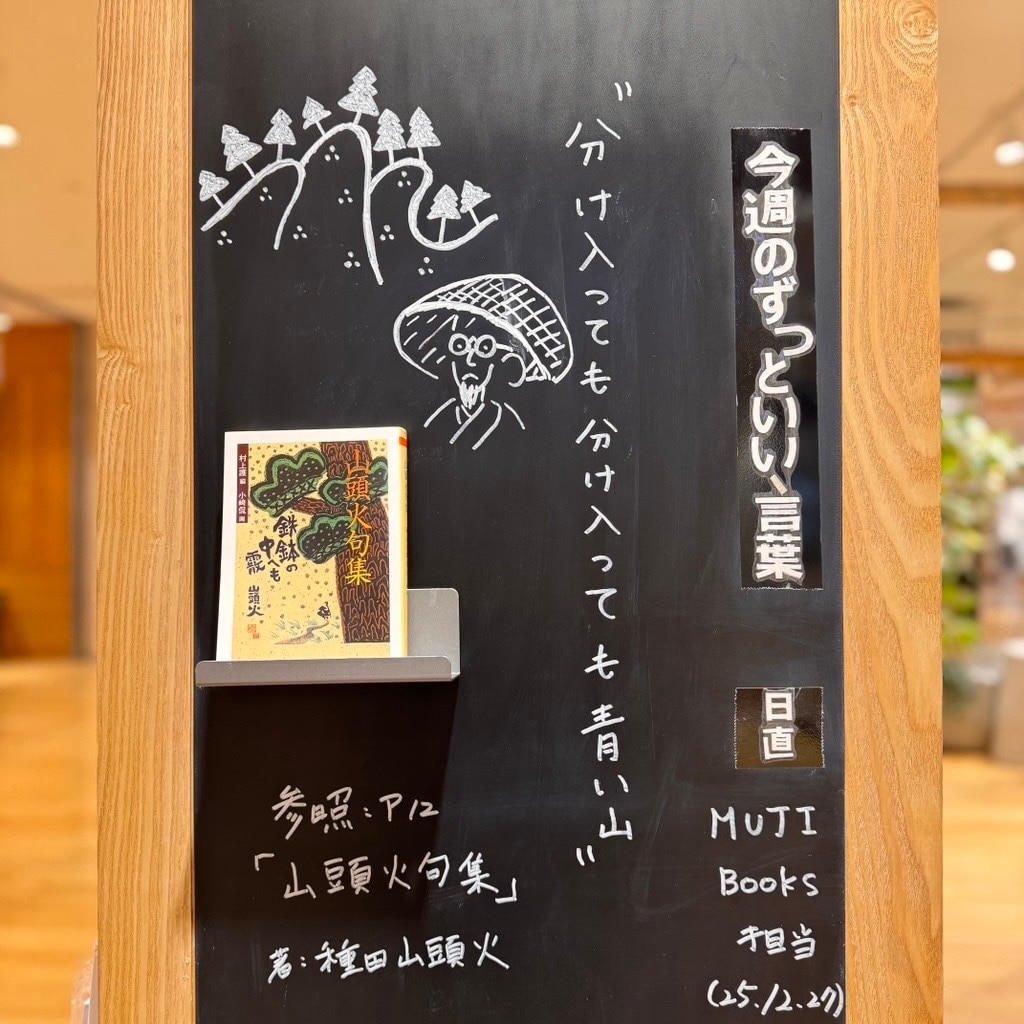 今週のずっといい、言葉
日直
MUJI
Books
担当
(25.12.27)
"分け入っても分け入っても青い山"
山頭火句集
村上護 編 小崎侃 画
鉄鉢の
中へも
霰
山頭火
参照:P12
「山頭火句集」
著:種田山頭火